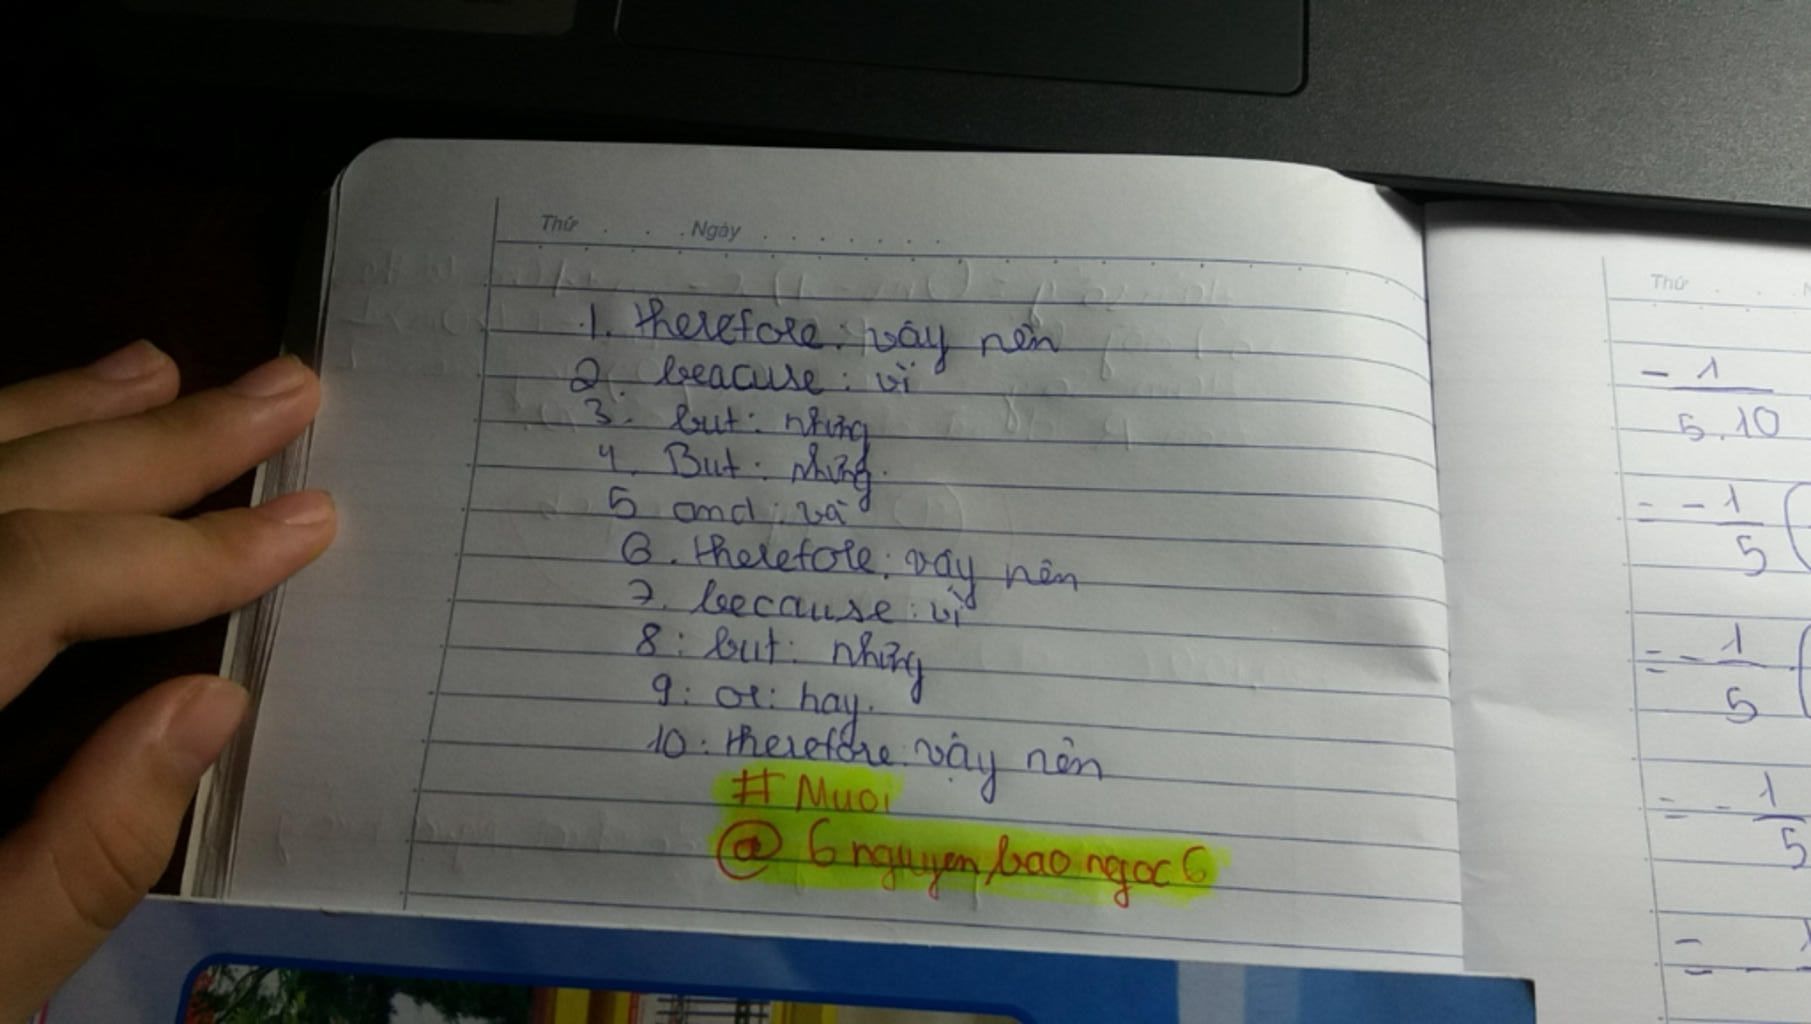 Thứ . . . Ngày . . . . . . .
1. therefore: vậy nên
2. beacuse: vì
3. but: nhưng
4. But: nhưng.
5 and: và
6. therefore: vậy nên
7. because: vì
8: but: nhưng
9: or: hay.
10: therefore: vậy nên
# Muoi
@ 6 nguyen bao ngoc 6
Thứ
- 1
5.10
= - 1
5
= - 1
5
= - 1
5
= -